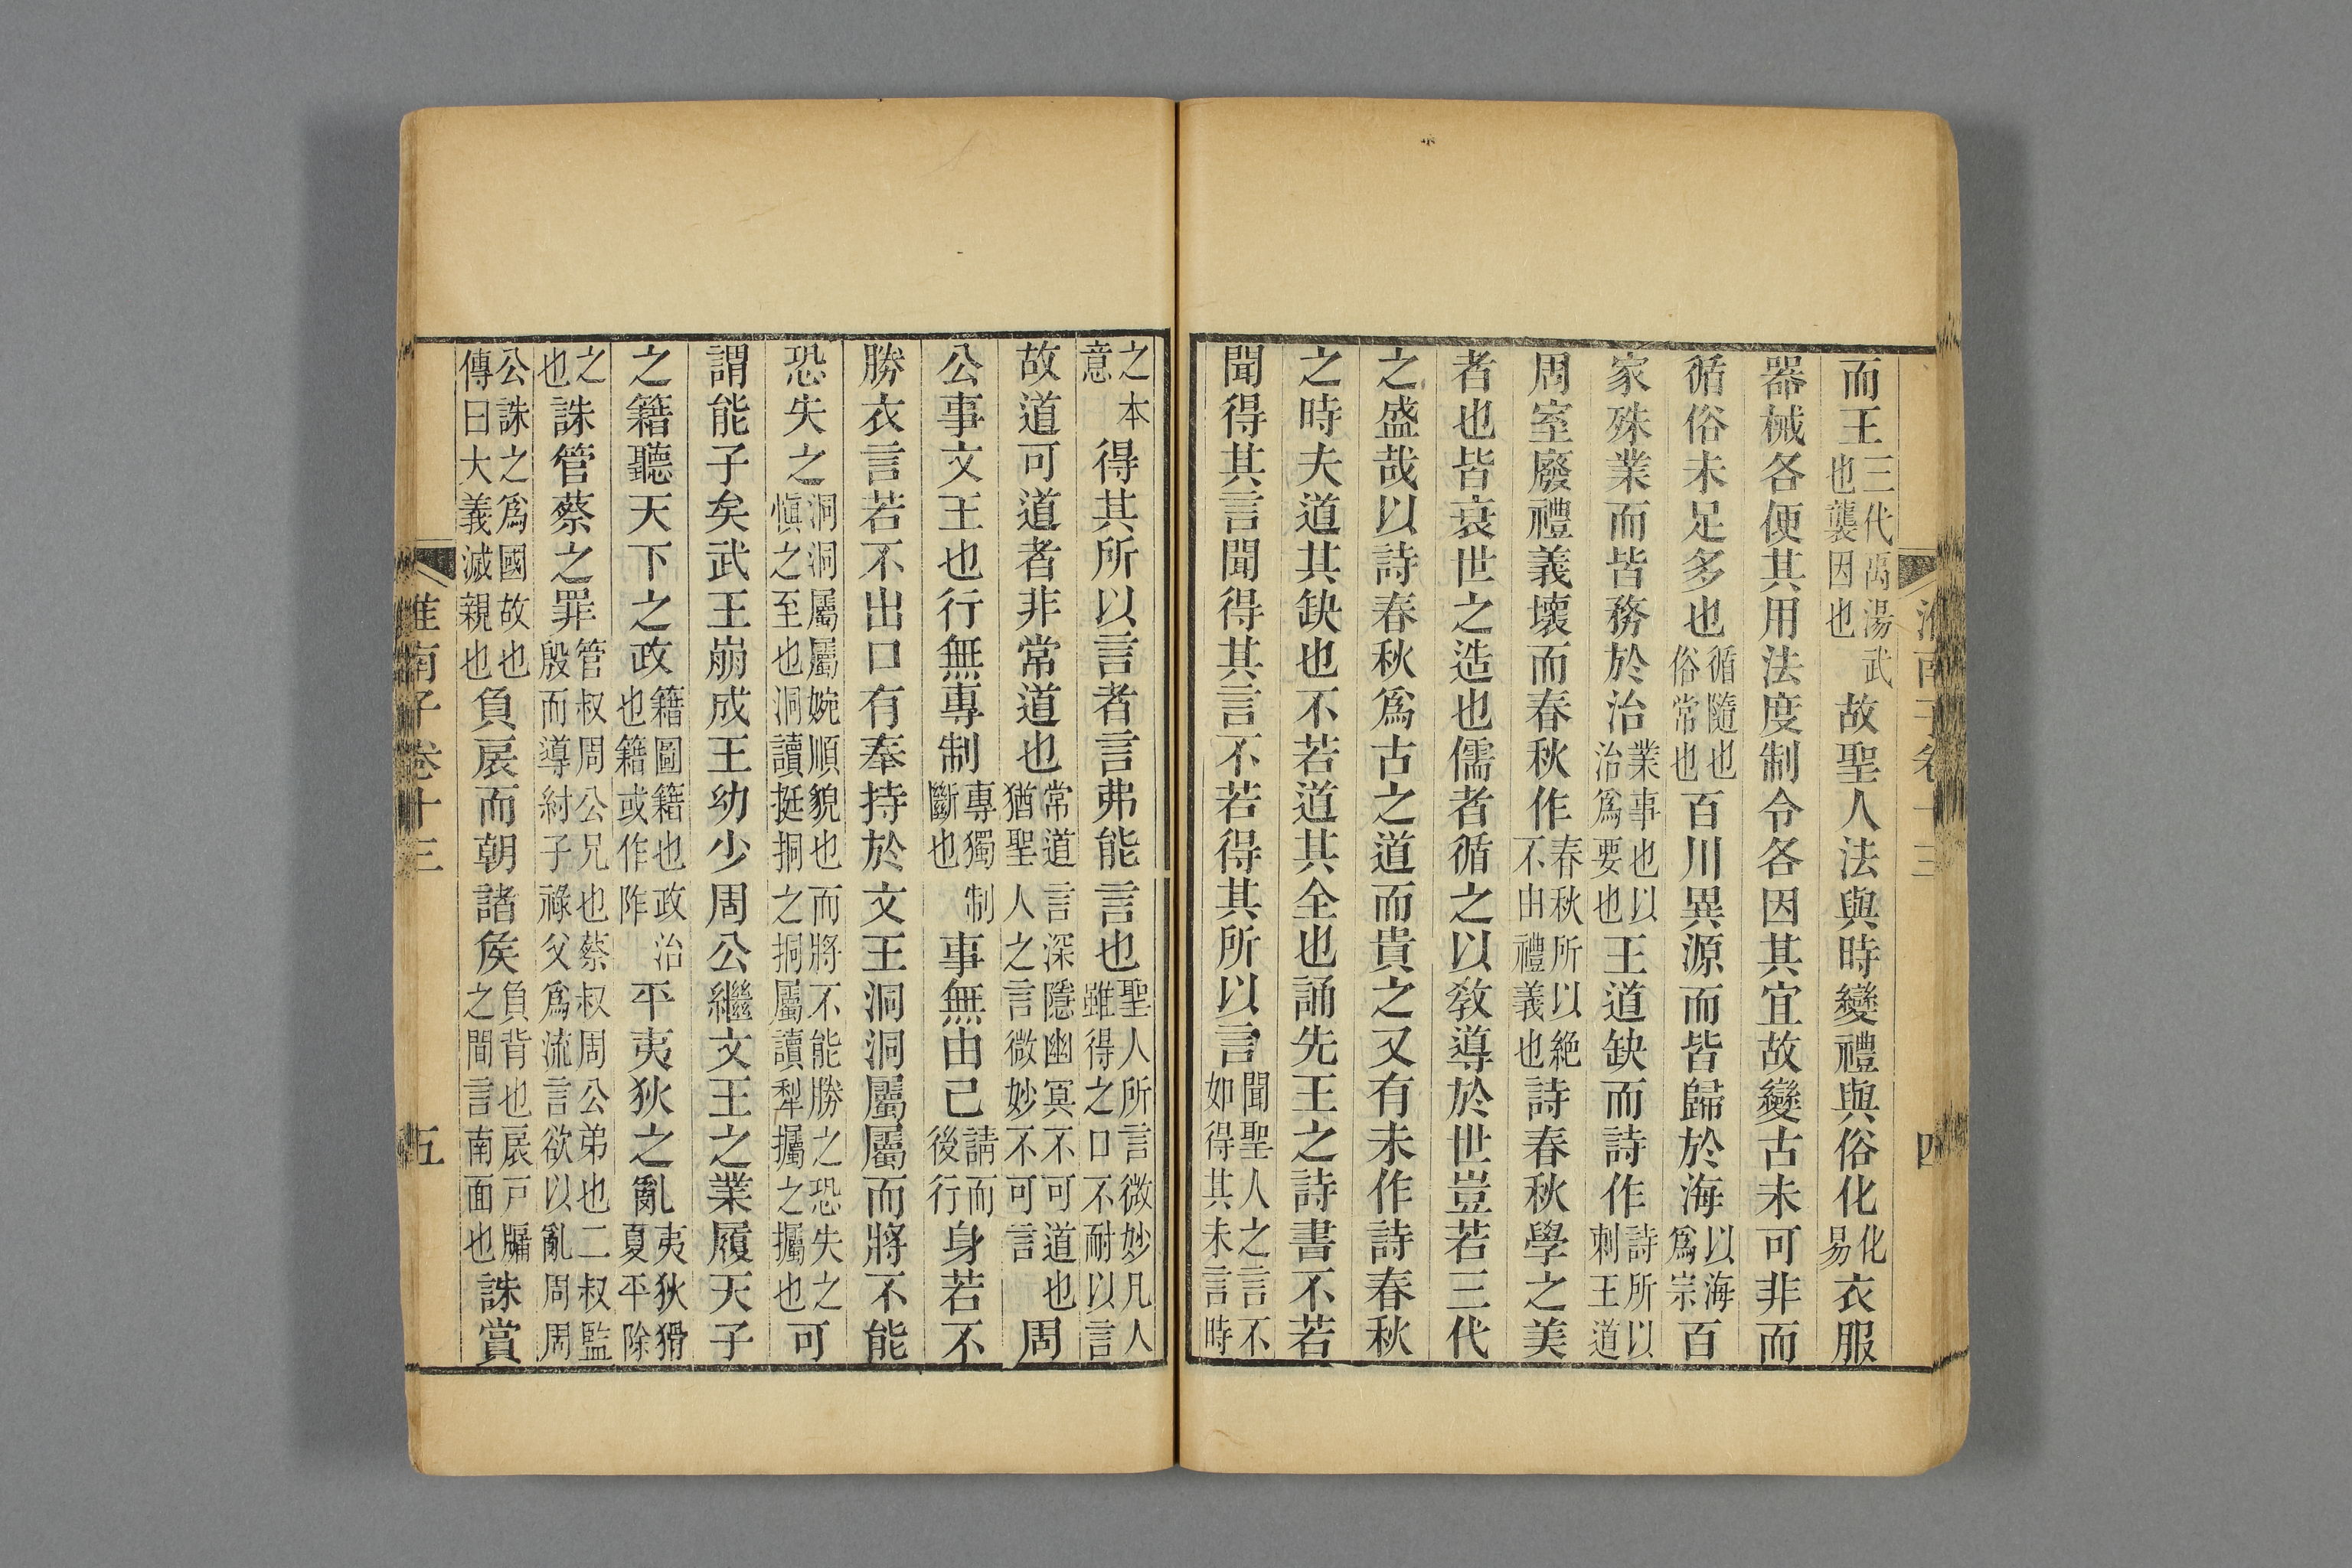 淮南子卷十三 四
而王三代禹湯武也襲因也故聖人法與時變禮與俗化化易衣服
器械各便其用法度制令各因其宜故變古未可非而
循俗未足多也循隨也俗常也百川異源而皆歸於海以海爲宗百
家殊業而皆務於治業事也以治爲要也王道缺而詩作詩所以刺王道
周室廢禮義壞而春秋作春秋所以絶不由禮義也詩春秋學之美
者也皆衰世之造也儒者循之以敎導於世豈若三代
之盛哉以詩春秋爲古之道而貴之又有未作詩春秋
之時夫道其缺也不若道其全也誦先王之詩書不若
聞得其言聞得其言不若得其所以言聞聖人之言不如得其未言時
之本意得其所以言者言弗能言也聖人所言微妙凡人雖得之口不耐以言
故道可道者非常道也常道言深隱幽冥不可道也猶聖人之言微妙不可言周
公事文王也行無專制專獨制斷也事無由己請而後行身若不
勝衣言若不出口有奉持於文王洞洞屬屬而將不能
恐失之洞洞屬屬婉順貌也而將不能勝之恐失之愼之至也洞讀挺挏之挏屬讀犁攦之攦也可
謂能子矣武王崩成王幼少周公繼文王之業履天子
之籍聽天下之政籍圖籍也政治也籍或作阼平夷狄之亂夷狄猾夏平除
之也誅管蔡之罪管叔周公兄也蔡叔周公弟也二叔監殷而導紂子祿父爲流言欲以亂周周
公誅之爲國故也傳曰大義滅親也負扆而朝諸矦負背也扆戸牖之間言南面也誅賞
淮南子卷十三 五